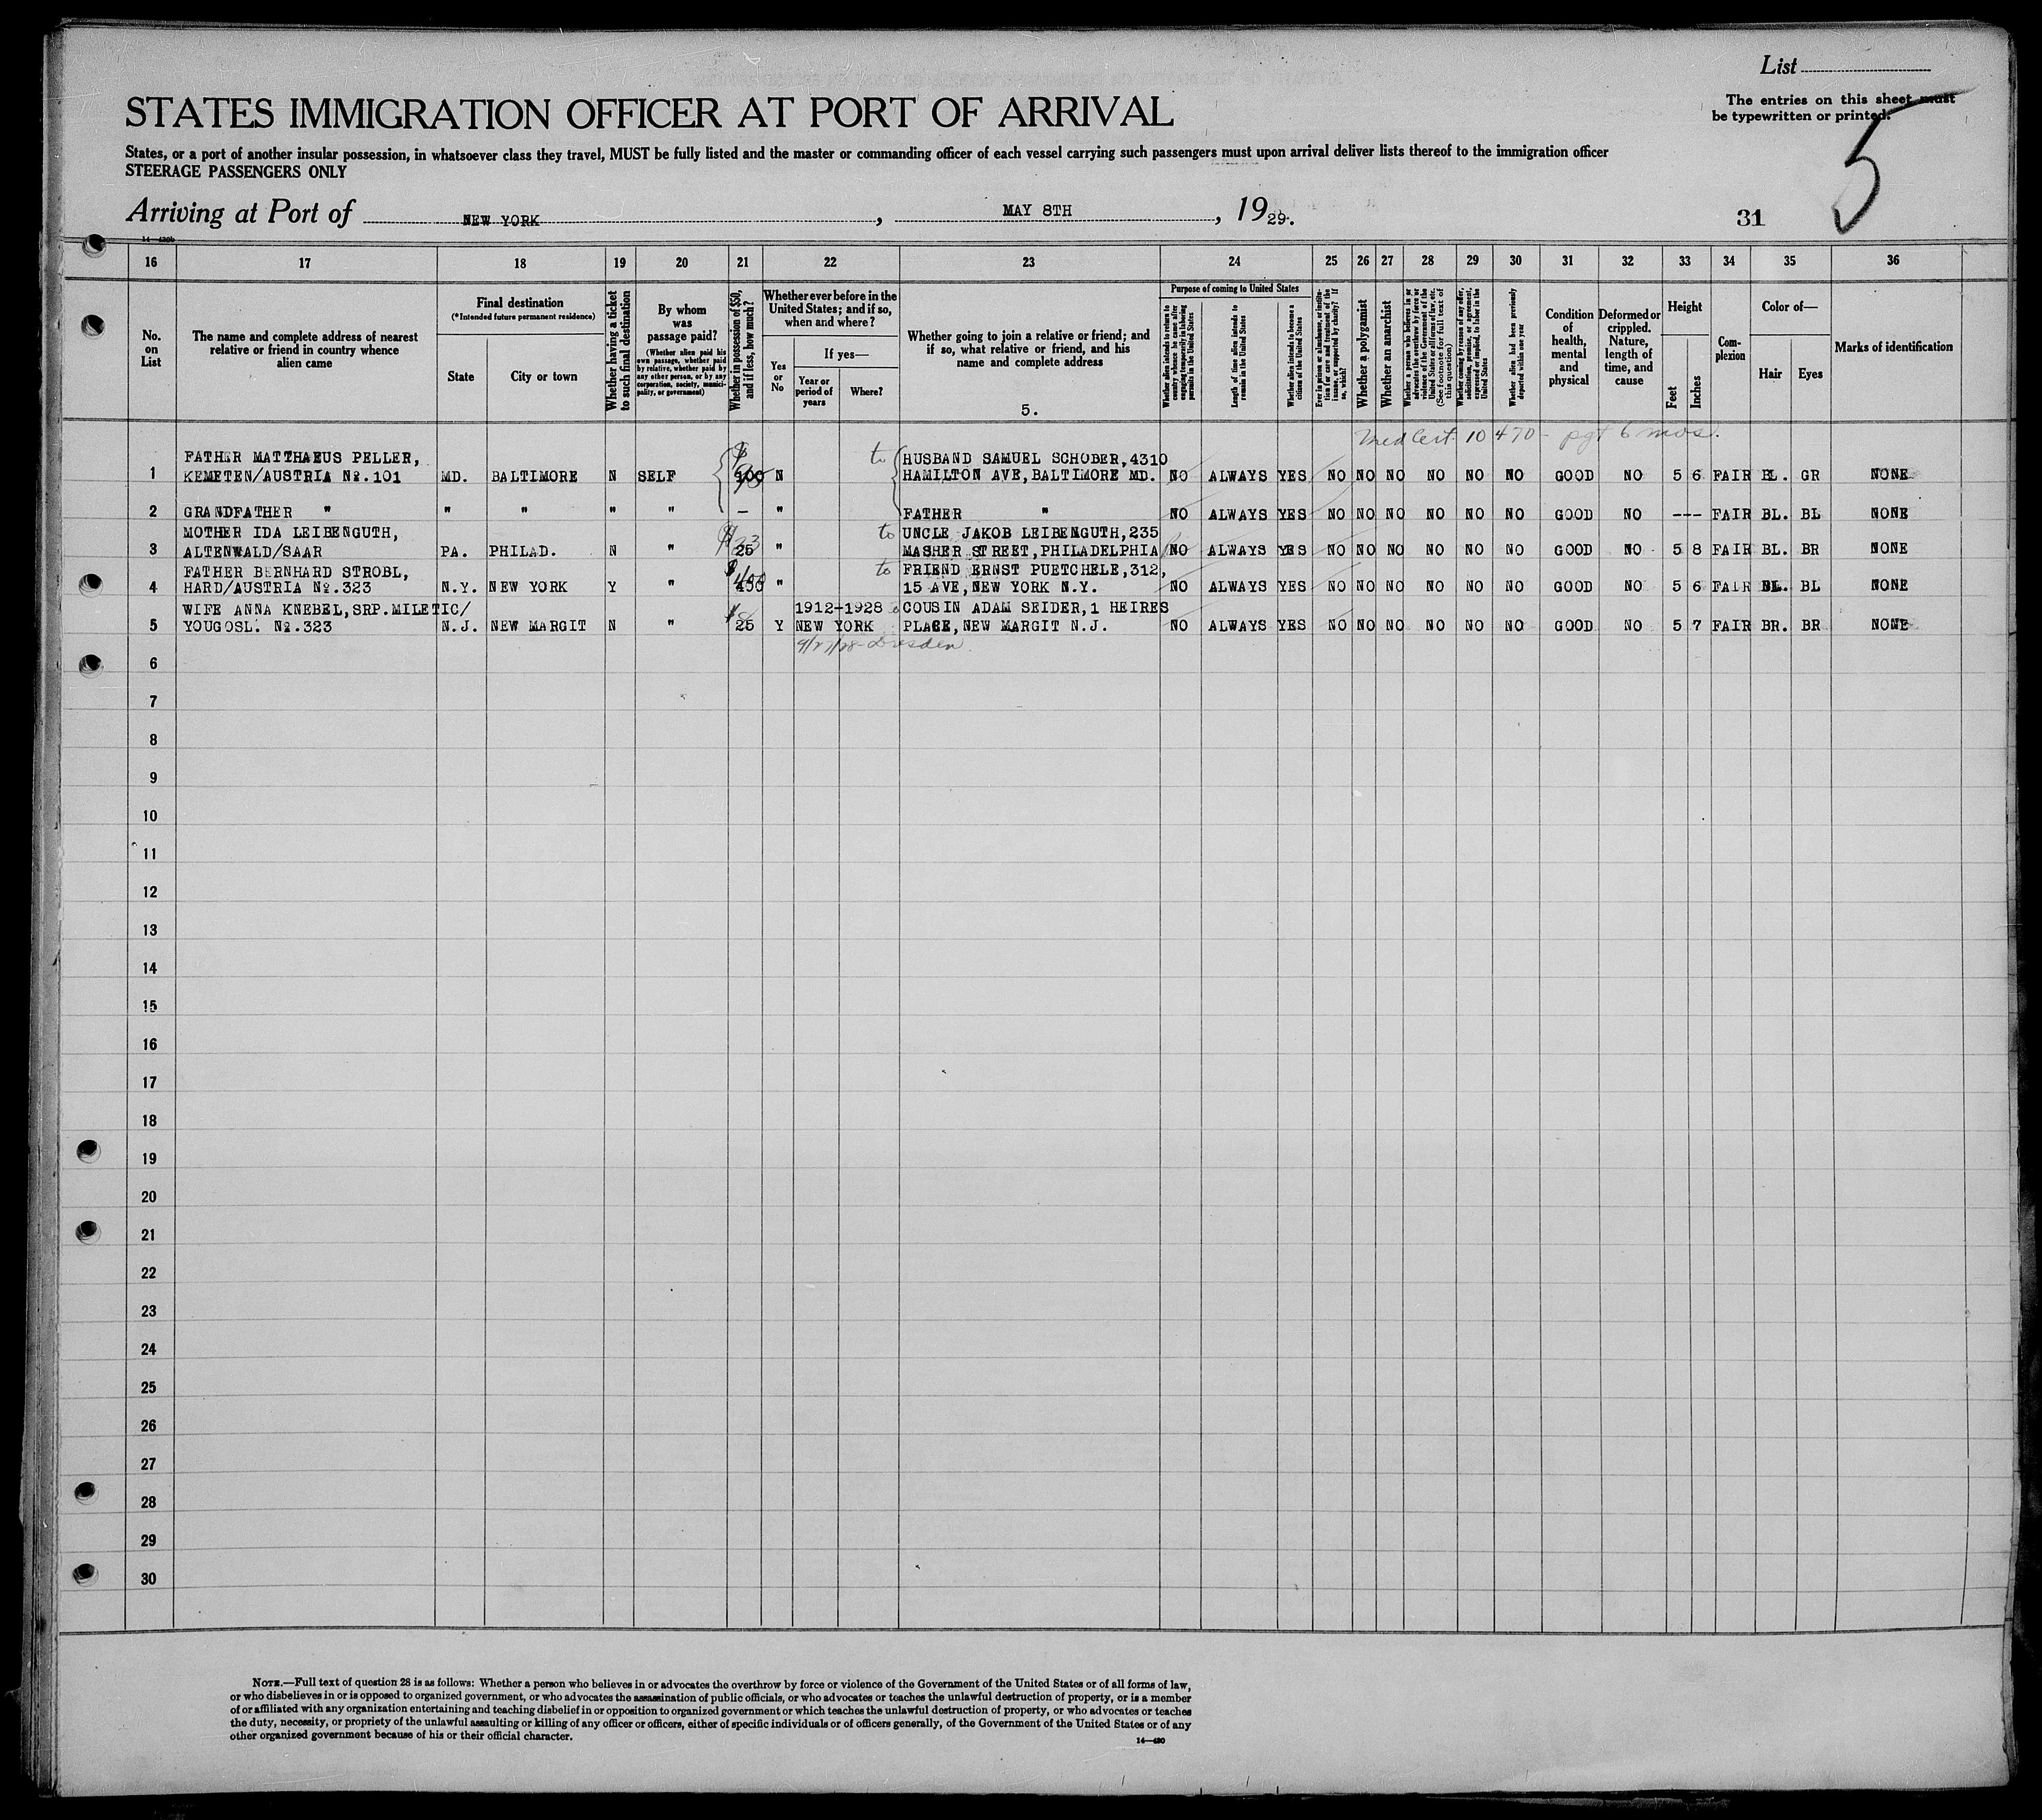 List
The entries on this sheet must
be typewritten or printed.
5
STATES IMMIGRATION OFFICER AT PORT OF ARRIVAL
States, or a port of another insular possession, in whatsoever class they travel, MUST be fully listed and the master or commanding officer of each vessel carrying such passengers must upon arrival deliver lists thereof to the immigration officer
STEERAGE PASSENGERS ONLY
Arriving at Port of NEW YORK, MAY 8TH, 1929.
31
14—430b
16 17 18 19 20 21 22 23 24 25 26 27 28 29 30 31 32 33 34 35 36
No. on List
The name and complete address of nearest
relative or friend in country whence
alien came
Final destination
(*Intended future permanent residence)
State
City or town
Whether having a ticket
to such final destination
By whom
was
passage paid?
(Whether alien paid his
own passage, whether paid
by relative, whether paid by
any other person, or by any
corporation, society, munici-
pality, or government)
Whether in possession of $50,
and if less, how much?
Whether ever before in the
United States; and if so,
when and where?
Yes
or
No
If yes—
Year or
period of
years
Where?
Whether going to join a relative or friend; and
if so, what relative or friend, and his
name and complete address
5.
Purpose of coming to United States
Whether alien intends to return to
country whence he came after
engaging temporarily in laboring
pursuits in the United States
Length of time alien intends to
remain in the United States
Whether alien intends to become a
citizen of the United States
Ever in prison or almshouse, or institu-
tion for care and treatment of the
insane, or supported by charity? If
so, which?
Whether a polygamist
Whether an anarchist
Whether a person who believes in or
advocates the overthrow by force or
violence of the Government of the
United States or all forms of law, etc.
(See footnote for full text of
this question)
Whether coming by reason of any offer,
solicitation, promise, or agreement,
expressed or implied, to labor in the
United States
Whether alien had been previously
deported within one year
Condition
of
health,
mental
and
physical
Deformed or
crippled.
Nature,
length of
time, and
cause
Height
Feet
Inches
Com-
plexion
Color of—
Hair
Eyes
Marks of identification
Med Cert. 10470 - pgt 6 mos.
FATHER MATTHAEUS PELLER, to HUSBAND SAMUEL SCHOBER, 4310
1 KEMETEN/AUSTRIA No. 101 MD. BALTIMORE N SELF N HAMILTON AVE, BALTIMORE MD. NO ALWAYS YES NO NO NO NO NO NO GOOD NO 5 6 FAIR BL. GR NONE
2 GRANDFATHER " " " " " — " FATHER " NO ALWAYS YES NO NO NO NO NO NO GOOD NO --- FAIR BL. BL NONE
MOTHER IDA LEIBENGUTH, to UNCLE JAKOB LEIBENGUTH, 235
3 ALTENWALD/SAAR PA. PHILAD. N " 25 " MASHER STREET, PHILADELPHIA NO ALWAYS YES NO NO NO NO NO NO GOOD NO 5 8 FAIR BL. BR NONE
FATHER BERNHARD STROBL, to FRIEND ERNST PUETCHELE, 312,
4 HARD/AUSTRIA No. 323 N.Y. NEW YORK Y " " 15 AVE, NEW YORK N.Y. NO ALWAYS YES NO NO NO NO NO NO GOOD NO 5 6 FAIR BL. BL NONE
WIFE ANNA KNEBEL, SRP. MILETIC/ 1912-1928 COUSIN ADAM SEIDER, 1 HEIRES
5 YOUGOSL. No. 323 N.J. NEW MARGIT N " 25 Y NEW YORK PLACE, NEW MARGIT N.J. NO ALWAYS YES NO NO NO NO NO NO GOOD NO 5 7 FAIR BR. BR NONE
9/27/28 - Dresden
6
7
8
9
10
11
12
13
14
15
16
17
18
19
20
21
22
23
24
25
26
27
28
29
30
NOTE.—Full text of question 28 is as follows: Whether a person who believes in or advocates the overthrow by force or violence of the Government of the United States or of all forms of law,
or who disbelieves in or is opposed to organized government, or who advocates the assassination of public officials, or who advocates or teaches the unlawful destruction of property, or is a member
of or affiliated with any organization entertaining and teaching disbelief in or opposition to organized government or which teaches the unlawful destruction of property, or who advocates or teaches
the duty, necessity, or propriety of the unlawful assaulting or killing of any officer or officers, either of specific individuals or of officers generally, of the Government of the United States or of any
other organized government because of his or their official character.
14—430